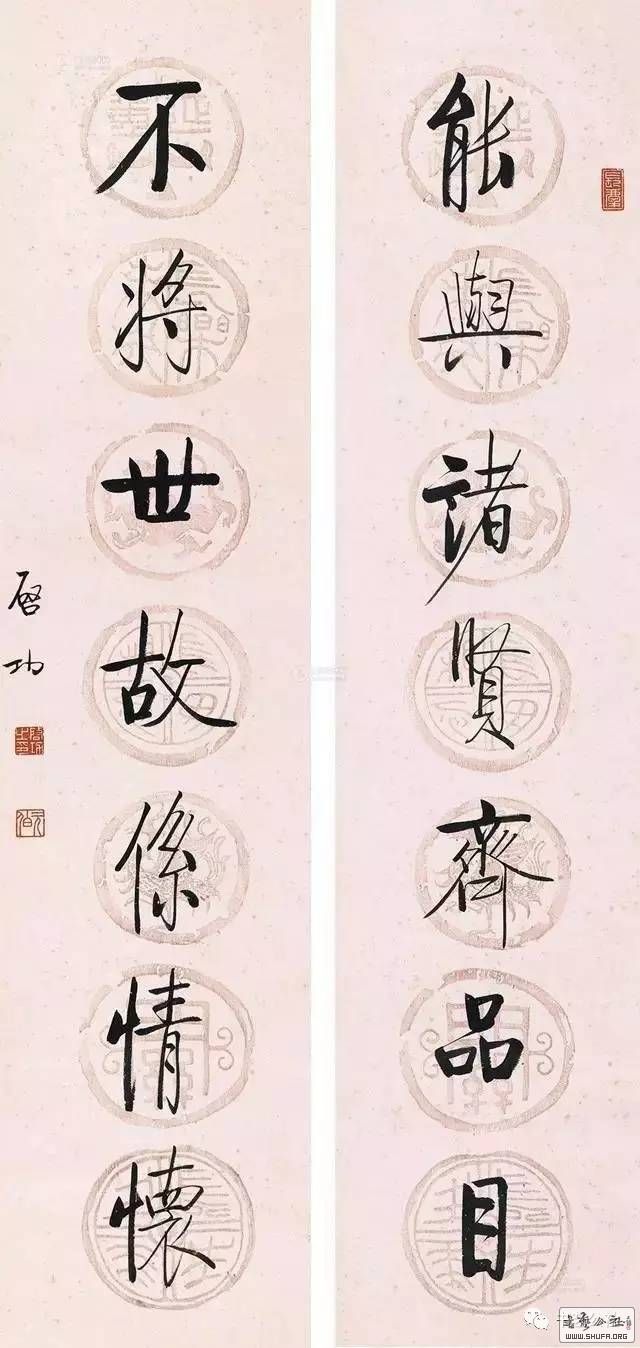 能與諸賢齊品目
不將世故係情懷
啓功
WWW.SHUFA.ORG